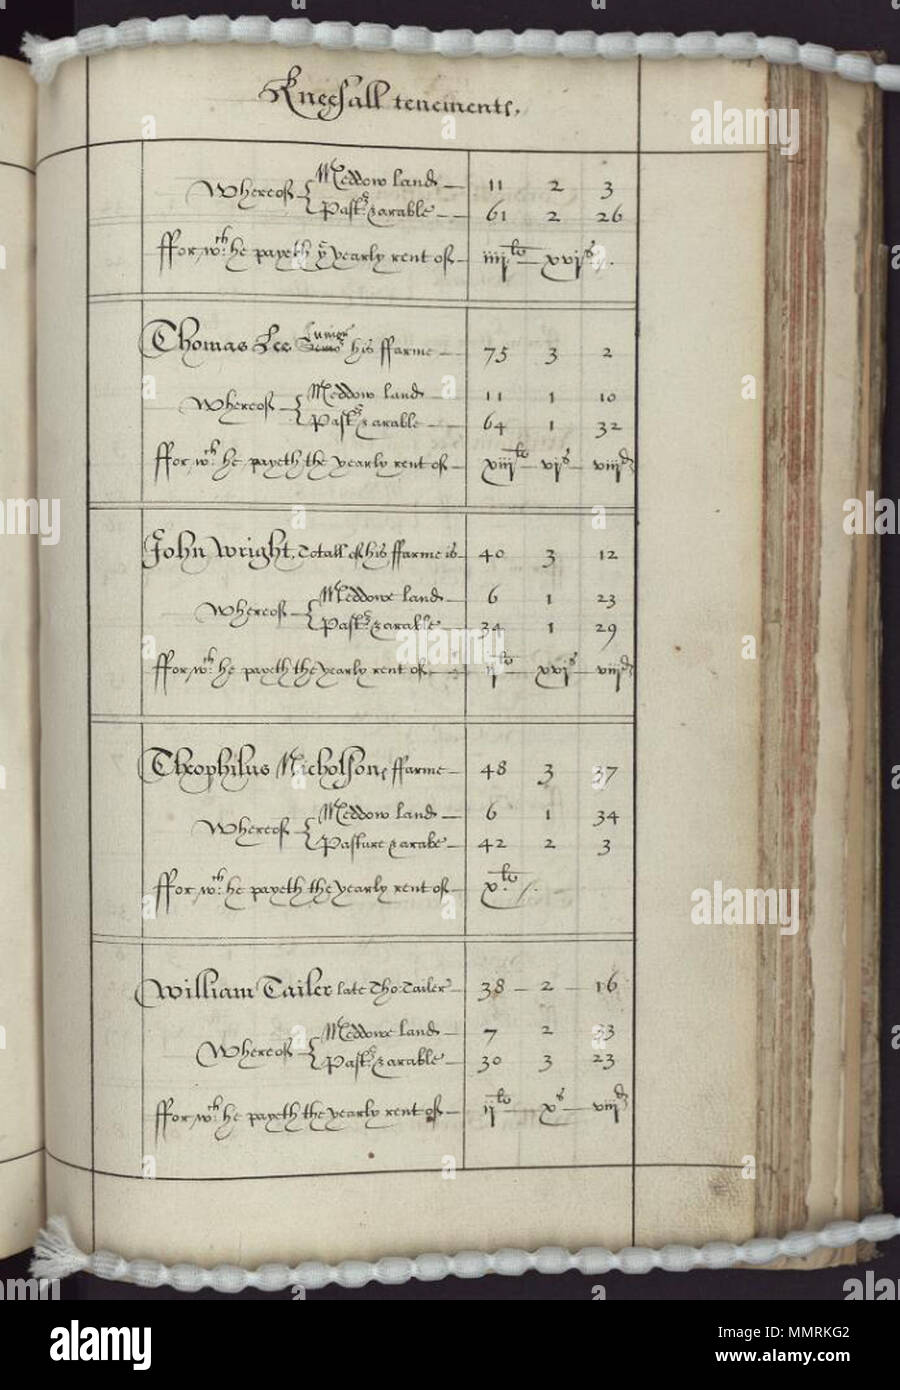 Kneesall tenements.
Whereof { Meddow land — 11 2 3
Past: & arable — 61 2 26
ffor wch: he payeth ye yearly rent of — iiij.lb — xvjs /.
Thomas Lee Junior his ffarme — 75 3 2
Whereof { Meddow land — 11 1 10
Past: & arable — 64 1 32
ffor wch: he payeth the yearly rent of — xiijlb — vjs — viijd
John Wright, Totall of his ffarme is — 40 3 12
Whereof { Meddowe land — 6 1 23
Past: & arable — 34 1 29
ffor wch: he payeth the yearly rent of — ijlb — xvjs — viijd
Theophilus Nicholsons ffarme — 48 3 37
Whereof { Meddow land — 6 1 34
Pasture & arabe — 42 2 3
ffor wch: he payeth the yearly rent of — x.lb /.
William Tailer late Tho: Tailer — 38 — 2 — 16
Whereof { Meddowe land — 7 2 33
Past: & arable — 30 3 23
ffor wch: he payeth the yearly rent of — ijlb — xs — viijd
alamy
alamy
Image ID: MMRKG2
www.alamy.com